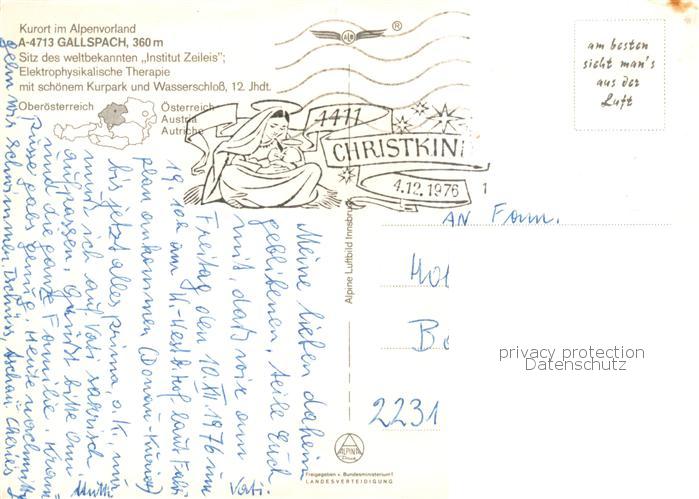 Kurort im Alpenvorland
A-4713 GALLSPACH, 360 m
Sitz des weltbekannten „Institut Zeileis";
Elektrophysikalische Therapie
mit schönem Kurpark und Wasserschloß, 12. Jhdt.
Oberösterreich
Österreich
Austria
Autriche
®
am besten
sieht man's
aus der
Luft
4411
CHRISTKIN
4.12.1976
Alpine Luftbild Innsbruck
Meine lieben daheim
gebliebenen, teile Euch
mit, daß wir am
Freitag den 10.XII.1976 um
19.10h am W.-Westb.hof laut Fahr
plan ankommen (Donau-Kurier)
bis jetzt alles prima, o.K., nur
muß ich auf Vati
aufpassen, grüßt bitte
und die ganze Familie.
gabs genug, Heute nachmitt
gehn wir schwimmen
Mutti
Vati.
AN Fam.
2231
privacy protection
Datenschutz
ALPINE
Freigegeben v. Bundesministerium f.
LANDESVERTEIDIGUNG